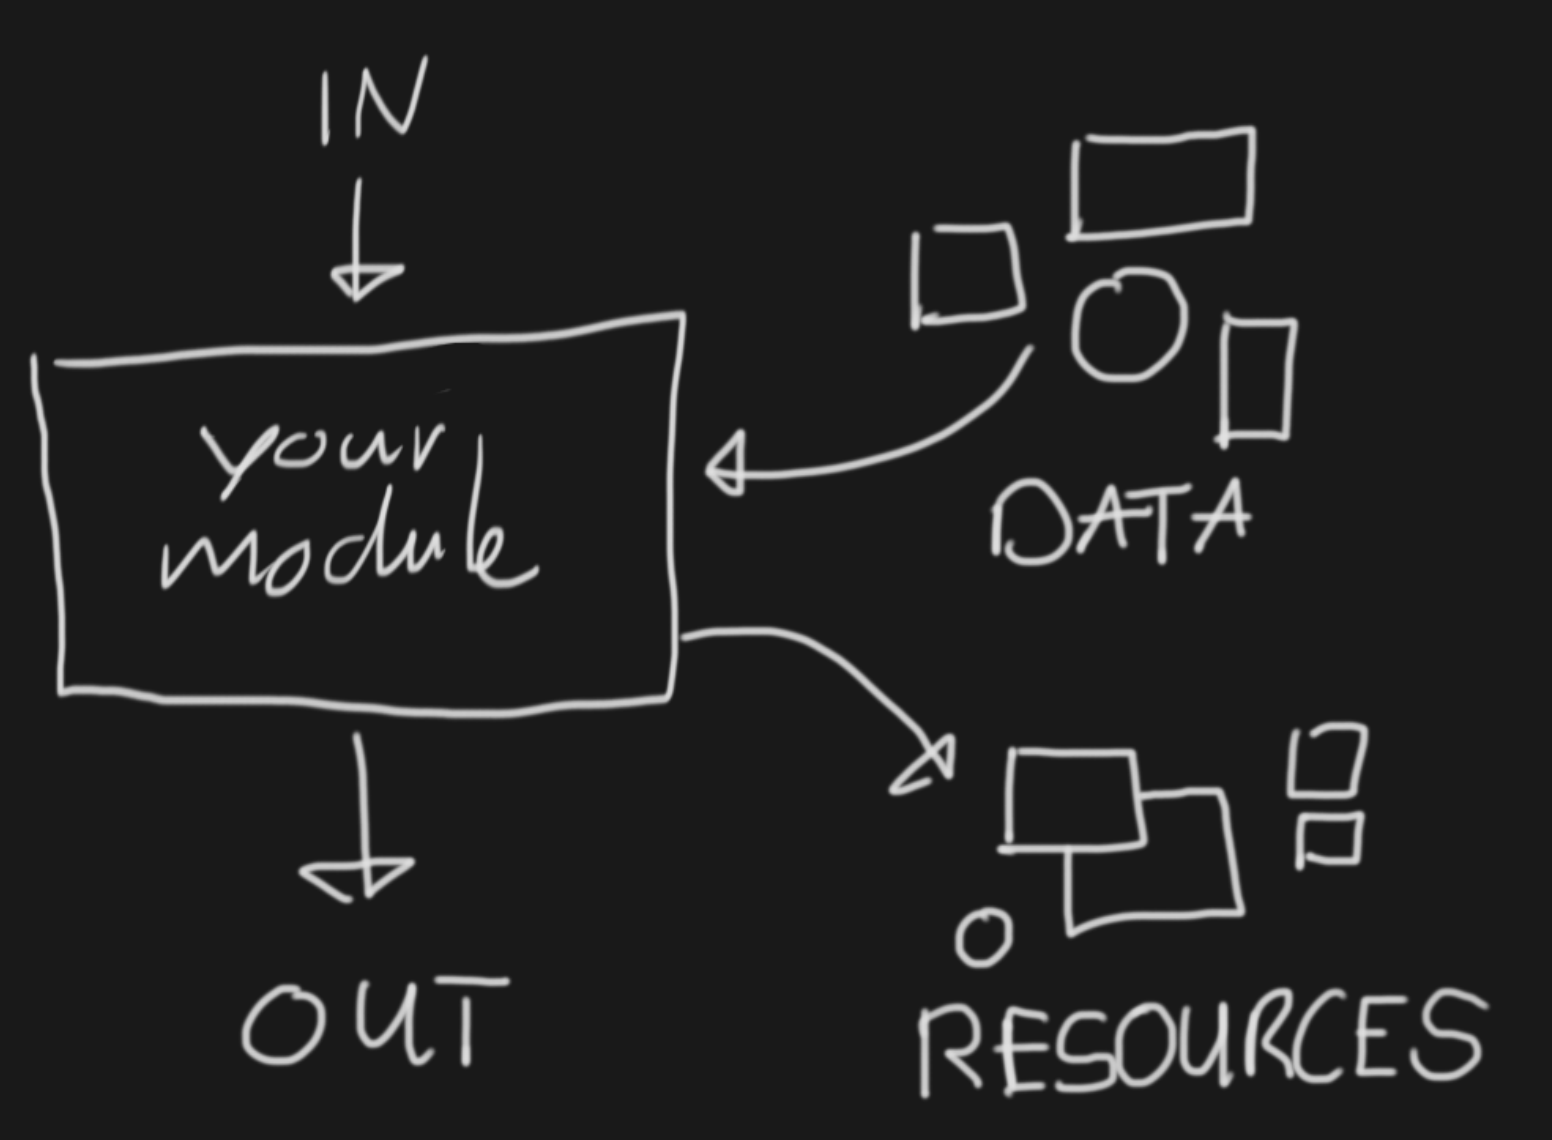 IN
your
module
DATA
OUT
RESOURCES